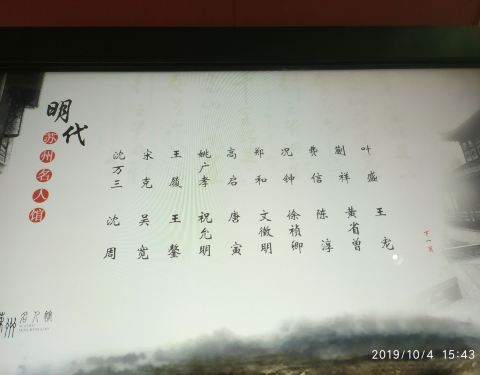 明代
苏州名人馆
沈万三 宋克 王履 姚广孝 高启 郑和 况钟 费信 蒯祥 叶盛
沈周 吴宽 王鏊 祝允明 唐寅 文徵明 徐祯卿 陈淳 黄省曾 王宠
下一页
苏州名人馆
2019/10/4 15:43